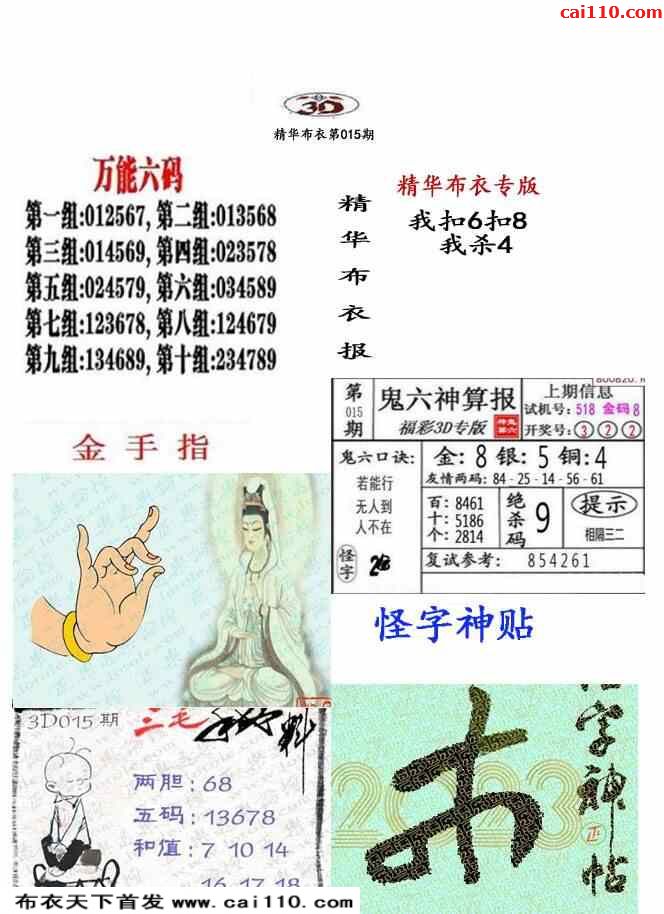 cai110.com
3D
精华布衣第015期
万能六码
第一组:012567,第二组:013568
第三组:014569,第四组:023578
第五组:024579,第六组:034589
第七组:123678,第八组:124679
第九组:134689,第十组:234789
精华布衣报
精华布衣专版
我扣6扣8
我杀4
金手指
第015期
鬼六神算报
福彩3D专版
上期信息
试机号: 518 金码 8
开奖号: 3 2 2
鬼六口诀:
若能行
无人到
人不在
怪字
金: 8 银: 5 铜: 4
友情两码: 84-25-14-56-61
百: 8461
十: 5186
个: 2814
绝杀码 9
提示
相隔三二
复试参考: 854261
怪字神贴
3D015期
三毛
两胆: 68
五码: 13678
和值: 7 10 14
16 17 18
2023
怪字神帖
正
布衣天下首发 www.cai110.com